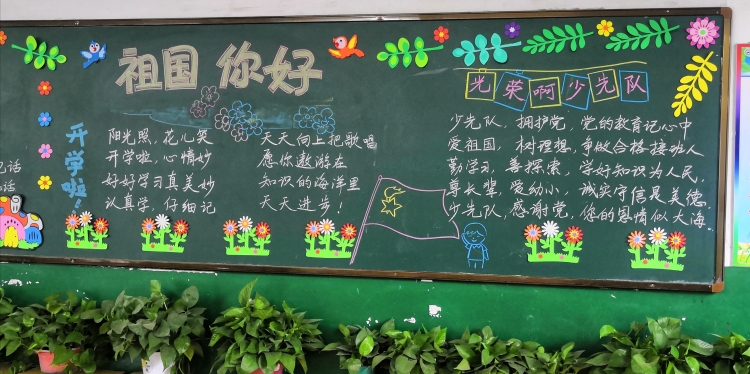 祖国 你好
开学啦!
阳光照,花儿笑
开学啦,心情妙
好好学习真美妙
认真学,仔细记
天天向上把歌唱
愿你遨游在
知识的海洋里
天天进步!
光荣啊少先队
少先队,拥护党,党的教育记心中
爱祖国,树理想,争做合格接班人
勤学习,善探索,学好知识为人民,
尊长辈,爱幼小,诚实守信是美德,
少先队,感谢党,您的恩情似大海
记话
话